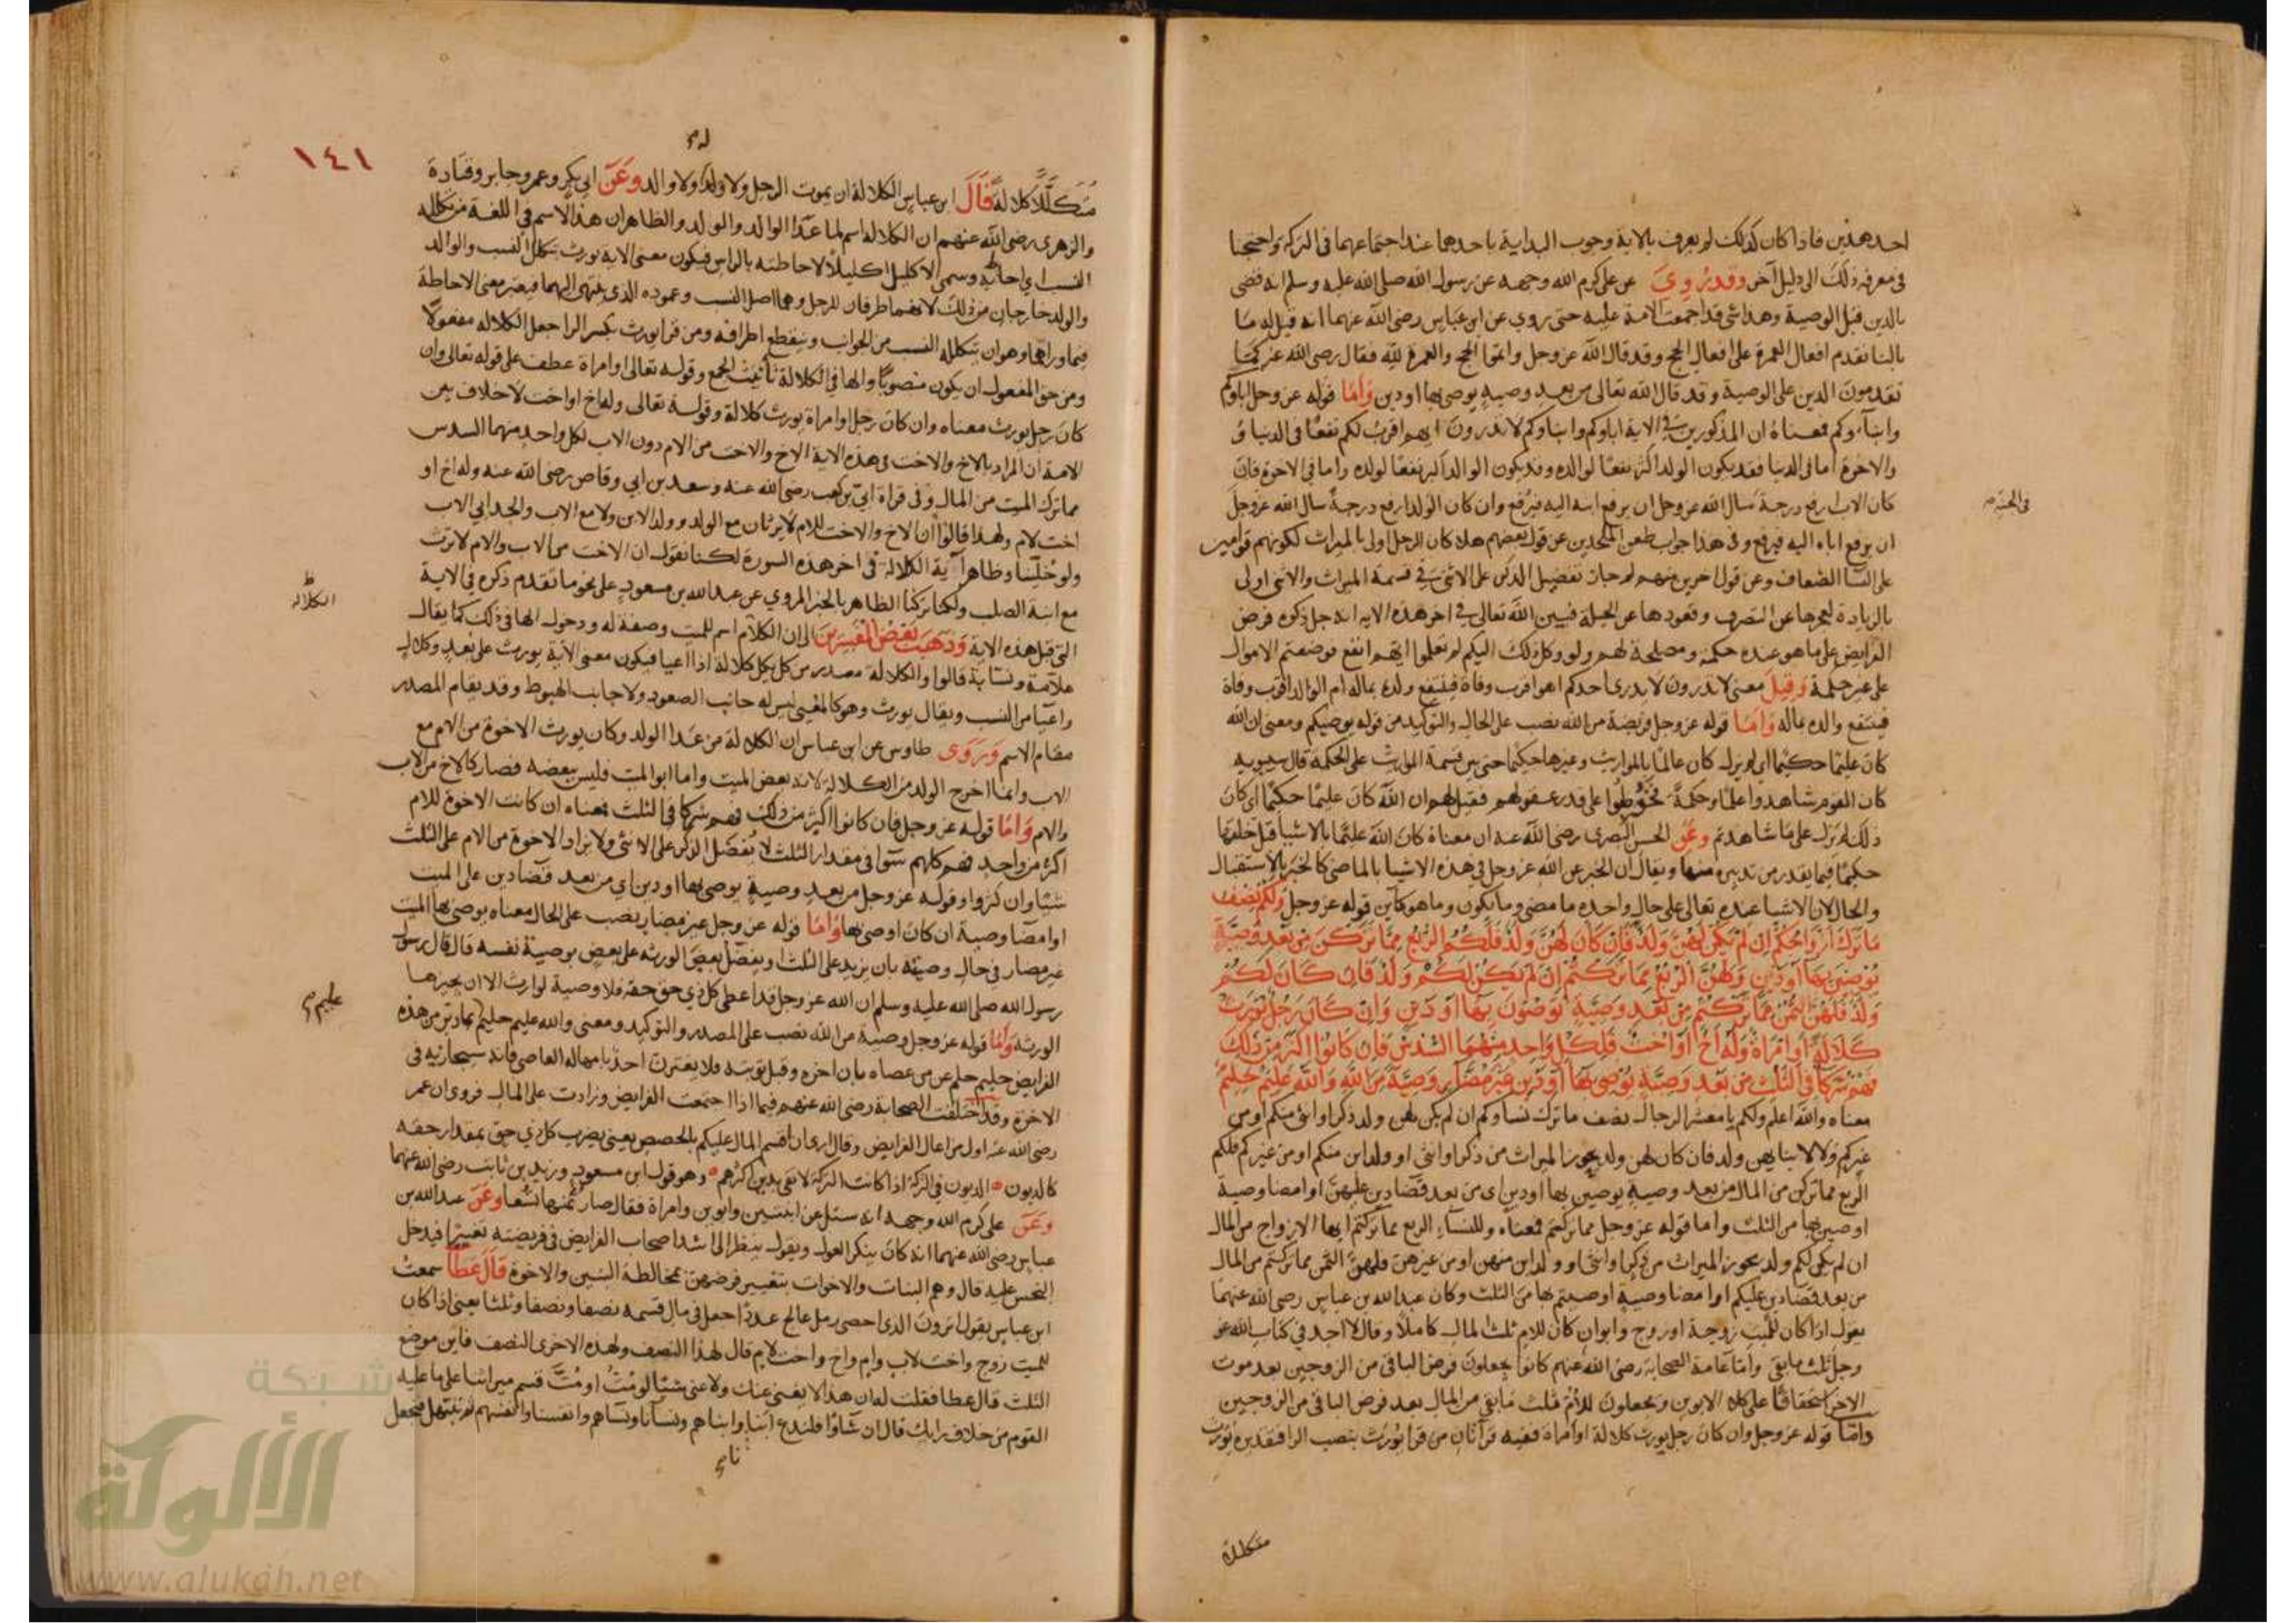 احد هذين فاذا كان كذلك لم يعرف بالاية وجوب البداية باحدهما عند اجتماعهما فى التركة واحتجنا
فى معرفة ذلك الى دليل آخر وقد رُوِيَ عن على كرم الله وجهه عن رسول الله صلى الله عليه وسلم انه قضى
بالدين قبل الوصية وهذا شى قد اجمعت الامة عليه حتى روي عن ابن عباس رضى الله عنهما انه قيل له ما
بالنا نقدم افعال العمرة على افعال الحج وقد قال الله عز وجل واتموا الحج والعمرة لله فقال رضى الله عنه كما
تقدمون الدين على الوصية وقد قال الله تعالى من بعد وصية يوصى بها او دين وَاَمَّا قوله عز وجل اباؤكم
وابناؤكم فمعناه ان المذكورين فى الاية اباوكم وابناوكم لا تدرون ايهم اقرب لكم نفعًا فى الدنيا
والاخرة اما فى الدنيا فقد يكون الولد اكثر نفعًا لوالده وقد يكون الوالد اكبر نفعًا لولده واما فى الاخرة فان
كان الاب ارفع درجة سال الله عز وجل ان يرفع ابنه اليه فيرفع وان كان الولد ارفع درجة سال الله عز وجل
فى الجنة
ان يرفع اباه اليه فيرفع وفى هذا جواب طعن الملحدين عن قول بعضهم هلا كان الرجل اولى بالميراث لكونهم قوامين
على النسا الضعاف وعن قول اخرين منهم لم جاز تفضيل الذكر على الانثى فى قسمة الميراث والانثى اولى
بالزيادة لعجزها عن التصرف وقعودها عن الحيلة فبين الله تعالى فى اخر هذه الاية انه جل ذكره فرض
الفرايض على ما هو عنده حكمة ومصلحة لهم ولو وكل ذلك اليكم لم تعلموا ايهم انفع فوضعتم الاموال
على غير حكمة وَقِيلَ معنى لا تدرون لا يدرى احدكم اهو اقرب وفاة فينتفع ولده بماله ام الوالد اقرب وفاة
فينتفع والده بماله وَاَمَّا قوله عز وجل فريضة من الله نصب على الحال والتوكيد من قوله يوصيكم ومعنى ان الله
كان عليمًا حكيمًا اى لم يزل كان عالمًا بالمواريث وغيرها حكيمًا حتى بين قسمة المواريث على الحكمة قال سيبويه
كان القوم شاهدوا علمًا وحكمةً فخُوطبوا على قدر عقولهم فقيل لهم ان الله كان عليمًا حكيمًا اى كان
ذلك لم يزل على ما شاهدتم وعَن الحسن البصرى رضى الله عنه ان معناه كان الله عليمًا بالاشيا قبل خلقها
حكيمًا فيما يقدر من تدبيره منها ويقال ان الخبر عن الله عز وجل فى هذه الاشيا بالماضى كالخبر بالاستقبال
والحال لان الاشيا عنده تعالى على حال واحدة ما مضى وما يكون وما هو كاين قوله عز وجل وَلَكُمْ نِصْفُ
مَا تَرَكَ اَزْوَاجُكُمْ اِن لَمْ يَكُنْ لَهُنَّ وَلَدٌ فَاِنْ كَانَ لَهُنَّ وَلَدٌ فَلَكُمُ الرُّبُعُ مِمَّا تَرَكْنَ مِنْ بَعْدِ وَصِيَّةٍ
يُوْصِيْنَ بِهَا اَوْ دَيْنٍ وَلَهُنَّ الرُّبُعُ مِمَّا تَرَكْتُمْ اِنْ لَمْ يَكُنْ لَكُمْ وَلَدٌ فَاِن كَانَ لَكُمْ
وَلَدٌ فَلَهُنَّ الثُّمُنُ مِمَّا تَرَكْتُمْ مِنْ بَعْدِ وَصِيَّةٍ تُوْصُوْنَ بِهَا اَوْ دَيْنٍ وَاِنْ كَانَ رَجُلٌ يُوْرَثُ
كَلَالَةً اَوِ امْرَاةٌ وَلَهُ اَخٌ اَوْ اُخْتٌ فَلِكُلِّ وَاحِدٍ مِنْهُمَا السُّدُسُ فَاِنْ كَانُوْا اَكْثَرَ مِنْ ذٰلِكَ
فَهُمْ شُرَكَاءُ فِى الثُّلُثِ مِنْ بَعْدِ وَصِيَّةٍ يُوْصٰى بِهَا اَوْ دَيْنٍ غَيْرَ مُضَارٍّ وَصِيَّةً مِنَ اللّٰهِ وَاللّٰهُ عَلِيْمٌ حَلِيْمٌ
معناه والله اعلم ولكم يا معشر الرجال نصف ما ترك نساوكم ان لم يكن لهن ولد ذكر او انثى منكم او من
غيركم ولا لابنايهن ولد فان كان لهن ولد يحوز الميراث من ذكر او انثى او ولد ابن منكم او من غيركم فلكم
الربع مما تركن من المال من بعد وصية يوصين بها او دين اى من بعد قضا دين عليهن او امضا وصية
اوصين بها من الثلث واما قوله عز وجل مما تركتم فمعناه وللنساء الربع مما تركتم ايها الازواج من المال
ان لم يكن لكم ولد يحوز الميراث من ذكر او انثى او ولد ابن منهن او من غيرهن فلهن الثمن مما تركتم من المال
من بعد قضا دين عليكم او امضا وصية اوصيتم بها من الثلث وكان عبد الله بن عباس رضى الله عنهما
يقول اذا كان للميت زوجة او زوج وابوان كان للام ثلث المال كاملا وقال لا اجد فى كتاب الله عز
وجل ثلث ما بقى واما عامة الصحابة رضى الله عنهم كانوا يجعلون فرض الباقى من الزوجين بعد موت
الاخر استحقاقًا على كلا الابوين ويجعلون للام ثلث ما بقى من المال بعد فرض الباقى من الزوجين
واما قوله عز وجل وان كان رجل يورث كلالة او امراة ففيه قرآتان من قرا يورث بنصب الرا فتقديره يورث
متكللا
١٤١
مُتَكَلِّلًا كلالةً قَالَ ابن عباس الكلالة ان يموت الرجل ولا ولد له ولا والد وعَنْ ابى بكر وعمر وجابر وقتادة
والزهرى رضى الله عنهم ان الكلالة اسم لما عدا الوالد والولد والظاهر ان هذا الاسم فى اللغة من تكلله
النسب اى احاط به وسمى الاكليل اكليلًا لاحاطته بالراس فيكون معنى الاية يورث بتكلل النسب والوالد
والولد خارجان من ذلك لانهما طرفان للرجل وهما اصل النسب وعموده الذى ينتهى اليهما فيعتبر معنى الاحاطة
فيما وراهما وهو ان يتكلله النسب من الجوانب وينقطع اطرافه ومن قرا يورث بكسر الرا جعل الكلالة مفعولًا
ومن حق المفعول ان يكون منصوبًا والها فى الكلالة تأنيث الجمع وقوله تعالى او امراة عطف على قوله تعالى وان
كان رجل يورث معناه وان كان رجل او امراة يورث كلالة وقوله تعالى وله اخ او اخت لا خلاف بين
الامة ان المراد بالاخ والاخت فى هذه الاية الاخ والاخت من الام دون الاب لكل واحد منهما السدس
مما ترك الميت من المال وفى قراة ابيّ بن كعب رضى الله عنه وسعد بن ابى وقاص رضى الله عنه وله اخ او
اخت لام ولهذا قالوا ان الاخ والاخت للام لا يرثان مع الولد وولد الابن ولا مع الاب والجد ابى الاب
ولو خلينا وظاهر آية الكلالة فى اخر هذه السورة لكنا نقول ان الاخت من الاب والام لا ترث
مع ابنة الصلب ولكنا تركنا الظاهر بالخبر المروي عن عبد الله بن مسعود على نحو ما تقدم ذكره فى الاية
الكلالة
التى قبل هذه الاية وَذَهَبَ بَعْضُ الْمُفَسِّرِينَ الى ان الكلام اسم للميت وصفة له ودخول الها فى ذلك كما يقال
علامة ونسابة قالوا والكلالة مصدر من كل يكل كلالة اذا اعيا فيكون معنى الاية يورث على بعد وكلال
واعيا من النسب ويقال يورث وهو كالمعيى ليس له جانب الصعود ولا جانب الهبوط وقد يقام المصدر
مقام الاسم وَرَوَى طاوس عن ابن عباس ان الكلالة من عدا الولد وكان يورث الاخوة من الام مع
الاب وانما اخرج الولد من الكلالة لانه بعض الميت واما ابو الميت فليس ببعضه فصار كالاخ من الاب
والام وَاَمَّا قوله عز وجل فان كانوا اكثر من ذلك فهم شركا فى الثلث فمعناه ان كانت الاخوة للام
اكثر من واحد فهم كلهم سوا فى مقدار الثلث لا يُفضَّل الذكر على الانثى ولا يزاد الاخوة من الام على الثلث
شيًا وان كثروا وقوله عز وجل من بعد وصية يوصى بها او دين اى من بعد قضا دين على الميت
او امضا وصية ان كان اوصى بها وَاَمَّا قوله عز وجل غير مضار نصب على الحال معناه يوصى بها الميت
غير مضار فى حال وصيته بان يزيد على الثلث او يفضل بعض الورثة على بعض بوصية نفسه قال قال رسول
رسول الله صلى الله عليه وسلم ان الله عز وجل قد اعطى كل ذى حق حقه فلا وصية لوارث الا ان يجيزها
عليم
الورثة وَاَمَّا قوله عز وجل وصية من الله نصب على المصدر والتوكيد ومعنى والله عليم حليم بما دبر من هذه
الفرايض حليم حلم عن من عصاه بان اخره وقبل توبته فلا يغترن احد بامهاله العاصى فانه سيجازيه فى
الاخرة وقد اختلفت الصحابة رضى الله عنهم فيما اذا اجتمعت الفرايض وزادت على المال فروى ان عمر
رضى الله عنه اول من اعال الفرايض وقال ارى ان اقسم المال عليكم بالحصص يعنى يضرب كل ذي حق بمقدار حقه
كالديون الديون فى التركة اذا كانت التركة لا تفى بدين اكثرهم وهو قول ابن مسعود وزيد بن ثابت رضى الله عنهما
وَعَنْ على كرم الله وجهه انه سئل عن ابنتين وابوين وامراة فقال صار ثمنها تسعا وَعَنْ عبد الله بن
عباس رضى الله عنهما انه كان ينكر العول ويقول ينظر الى اشد اصحاب الفرايض فى فريضته تغييرًا فيدخل
البخس عليه قال وهم البنات والاخوات بتغيير فرضهن بمخالطة البنين والاخوة قَالَ عَطَا سمعت
ابن عباس يقول اترون الذى احصى رمل عالج عددًا جعل فى مال قسمه نصفا ونصفا وثلثا يعنى اذا كان
للميت زوج واخت لاب وام واخ واخت لام قال لهذا النصف ولهذه الاخرى النصف فاين موضع
الثلث قال عطا فقلت له ان هذا لا يغنى عنك ولا عنى شيًا لو مُتُّ او مُتَّ قسم ميراثنا على ما عليه
القوم من خلاف رايك قال ان شاوا فلندع ابنانا وابناهم ونسانا ونساهم وانفسنا وانفسهم ثم نبتهل فنجعل
شبكة
الألوكة
www.alukah.net